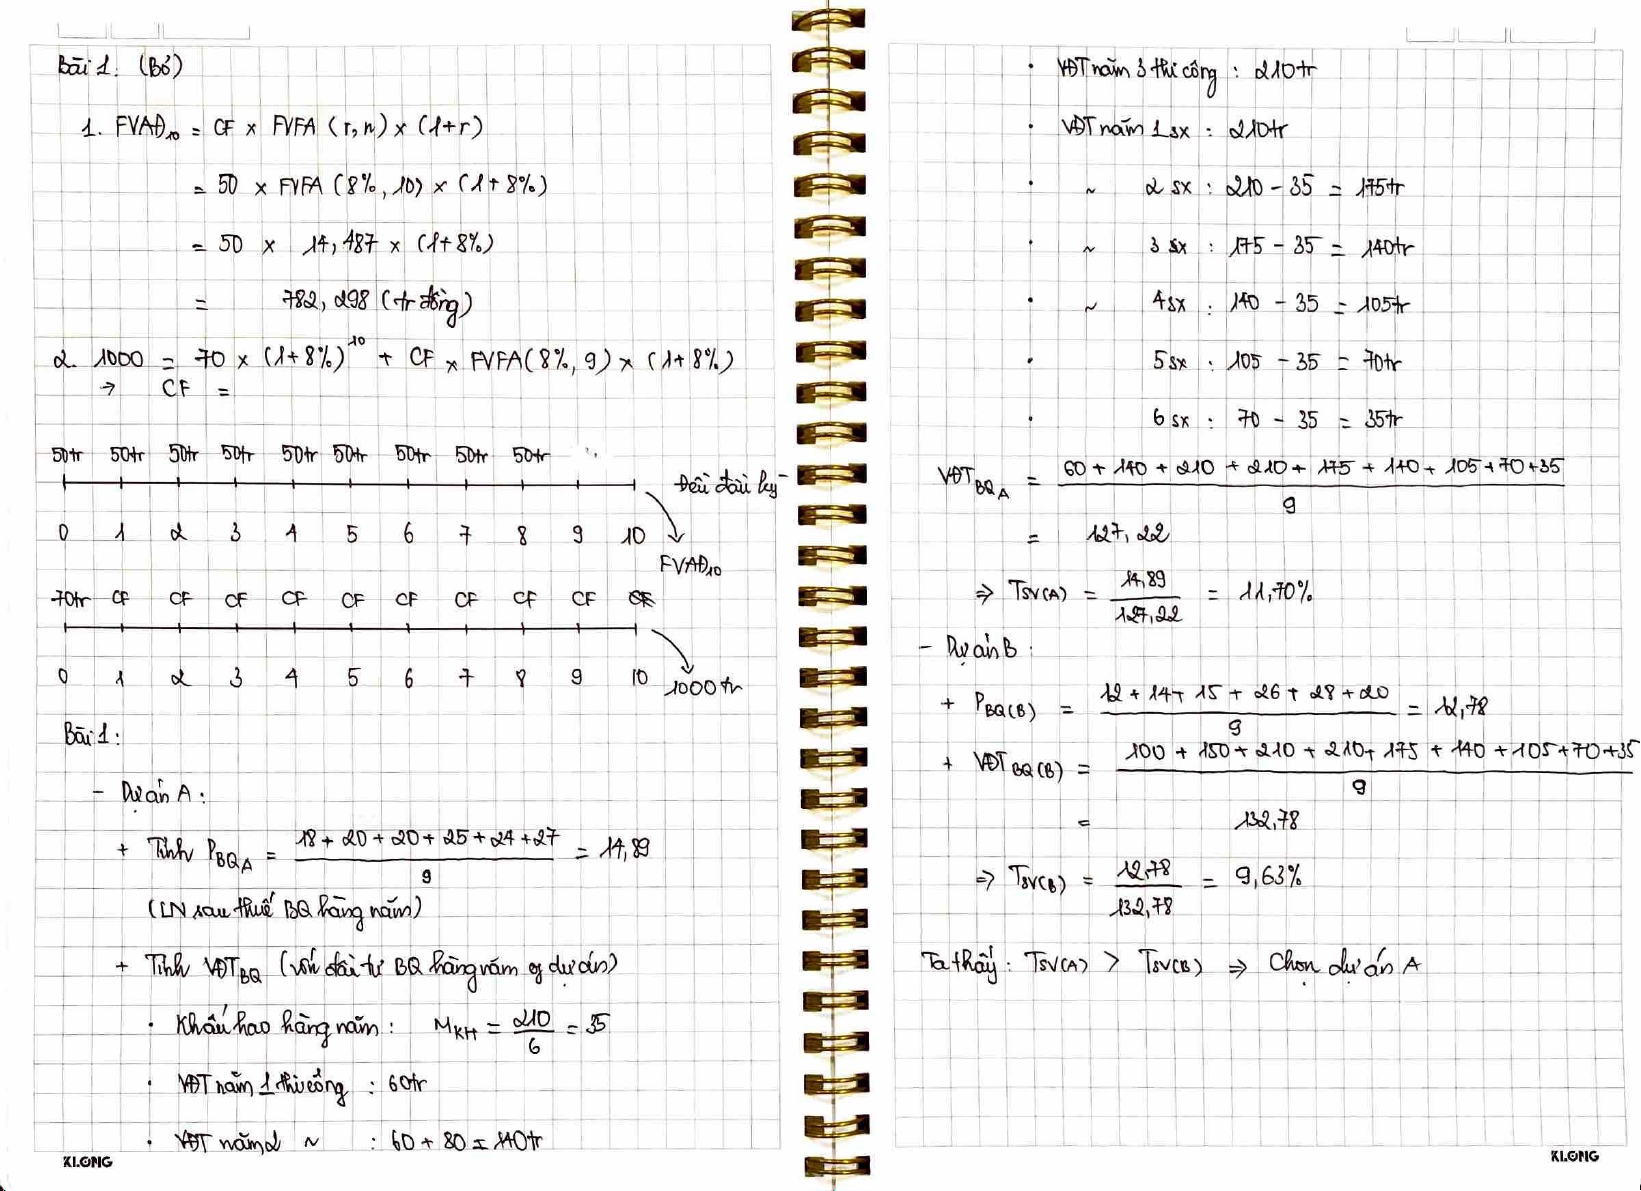 Bài 1: (Bỏ)
1. FVAĐ₁₀ = CF × FVFA (r,n) × (1+r)
= 50 × FVFA (8%, 10) × (1+8%)
= 50 × 14,487 × (1+8%)
= 782,298 (tr đồng)
2. 1000 = 70 × (1+8%)¹⁰ + CF × FVFA(8%, 9) × (1+8%)
→ CF =
50tr 50tr 50tr 50tr 50tr 50tr 50tr 50tr 50tr
Đều đầu kỳ
0 1 2 3 4 5 6 7 8 9 10
FVAĐ₁₀
70tr CF CF CF CF CF CF CF CF CF CF
0 1 2 3 4 5 6 7 8 9 10
1000tr
Bài 1:
- Dự án A:
+ Tính P_BQA = (18 + 20 + 20 + 25 + 24 + 27) / 9 = 14,89
(LN sau thuế BQ hàng năm)
+ Tính VĐT_BQ (vốn đầu tư BQ hàng năm of dự án)
· Khấu hao hàng năm: M_KH = 210 / 6 = 35
· VĐT năm 1 thi công : 60tr
· VĐT năm 2 ~ : 60 + 80 = 140tr
KLONG
· VĐT năm 3 thi công : 210tr
· VĐT năm 1 sx : 210tr
· ~ 2 sx : 210 - 35 = 175tr
· ~ 3 sx : 175 - 35 = 140tr
· ~ 4 sx : 140 - 35 = 105tr
· 5 sx : 105 - 35 = 70tr
· 6 sx : 70 - 35 = 35tr
VĐT_BQA = (60 + 140 + 210 + 210 + 175 + 140 + 105 + 70 + 35) / 9
= 127,22
⇒ T_SV(A) = 14,89 / 127,22 = 11,70%
- Dự án B :
+ P_BQ(B) = (12 + 14 + 15 + 26 + 28 + 20) / 9 = 12,78
+ VĐT_BQ(B) = (100 + 150 + 210 + 210 + 175 + 140 + 105 + 70 + 35) / 9
= 132,78
⇒ T_SV(B) = 12,78 / 132,78 = 9,63%
Ta thấy: T_SV(A) > T_SV(B) ⇒ Chọn dự án A
KLONG